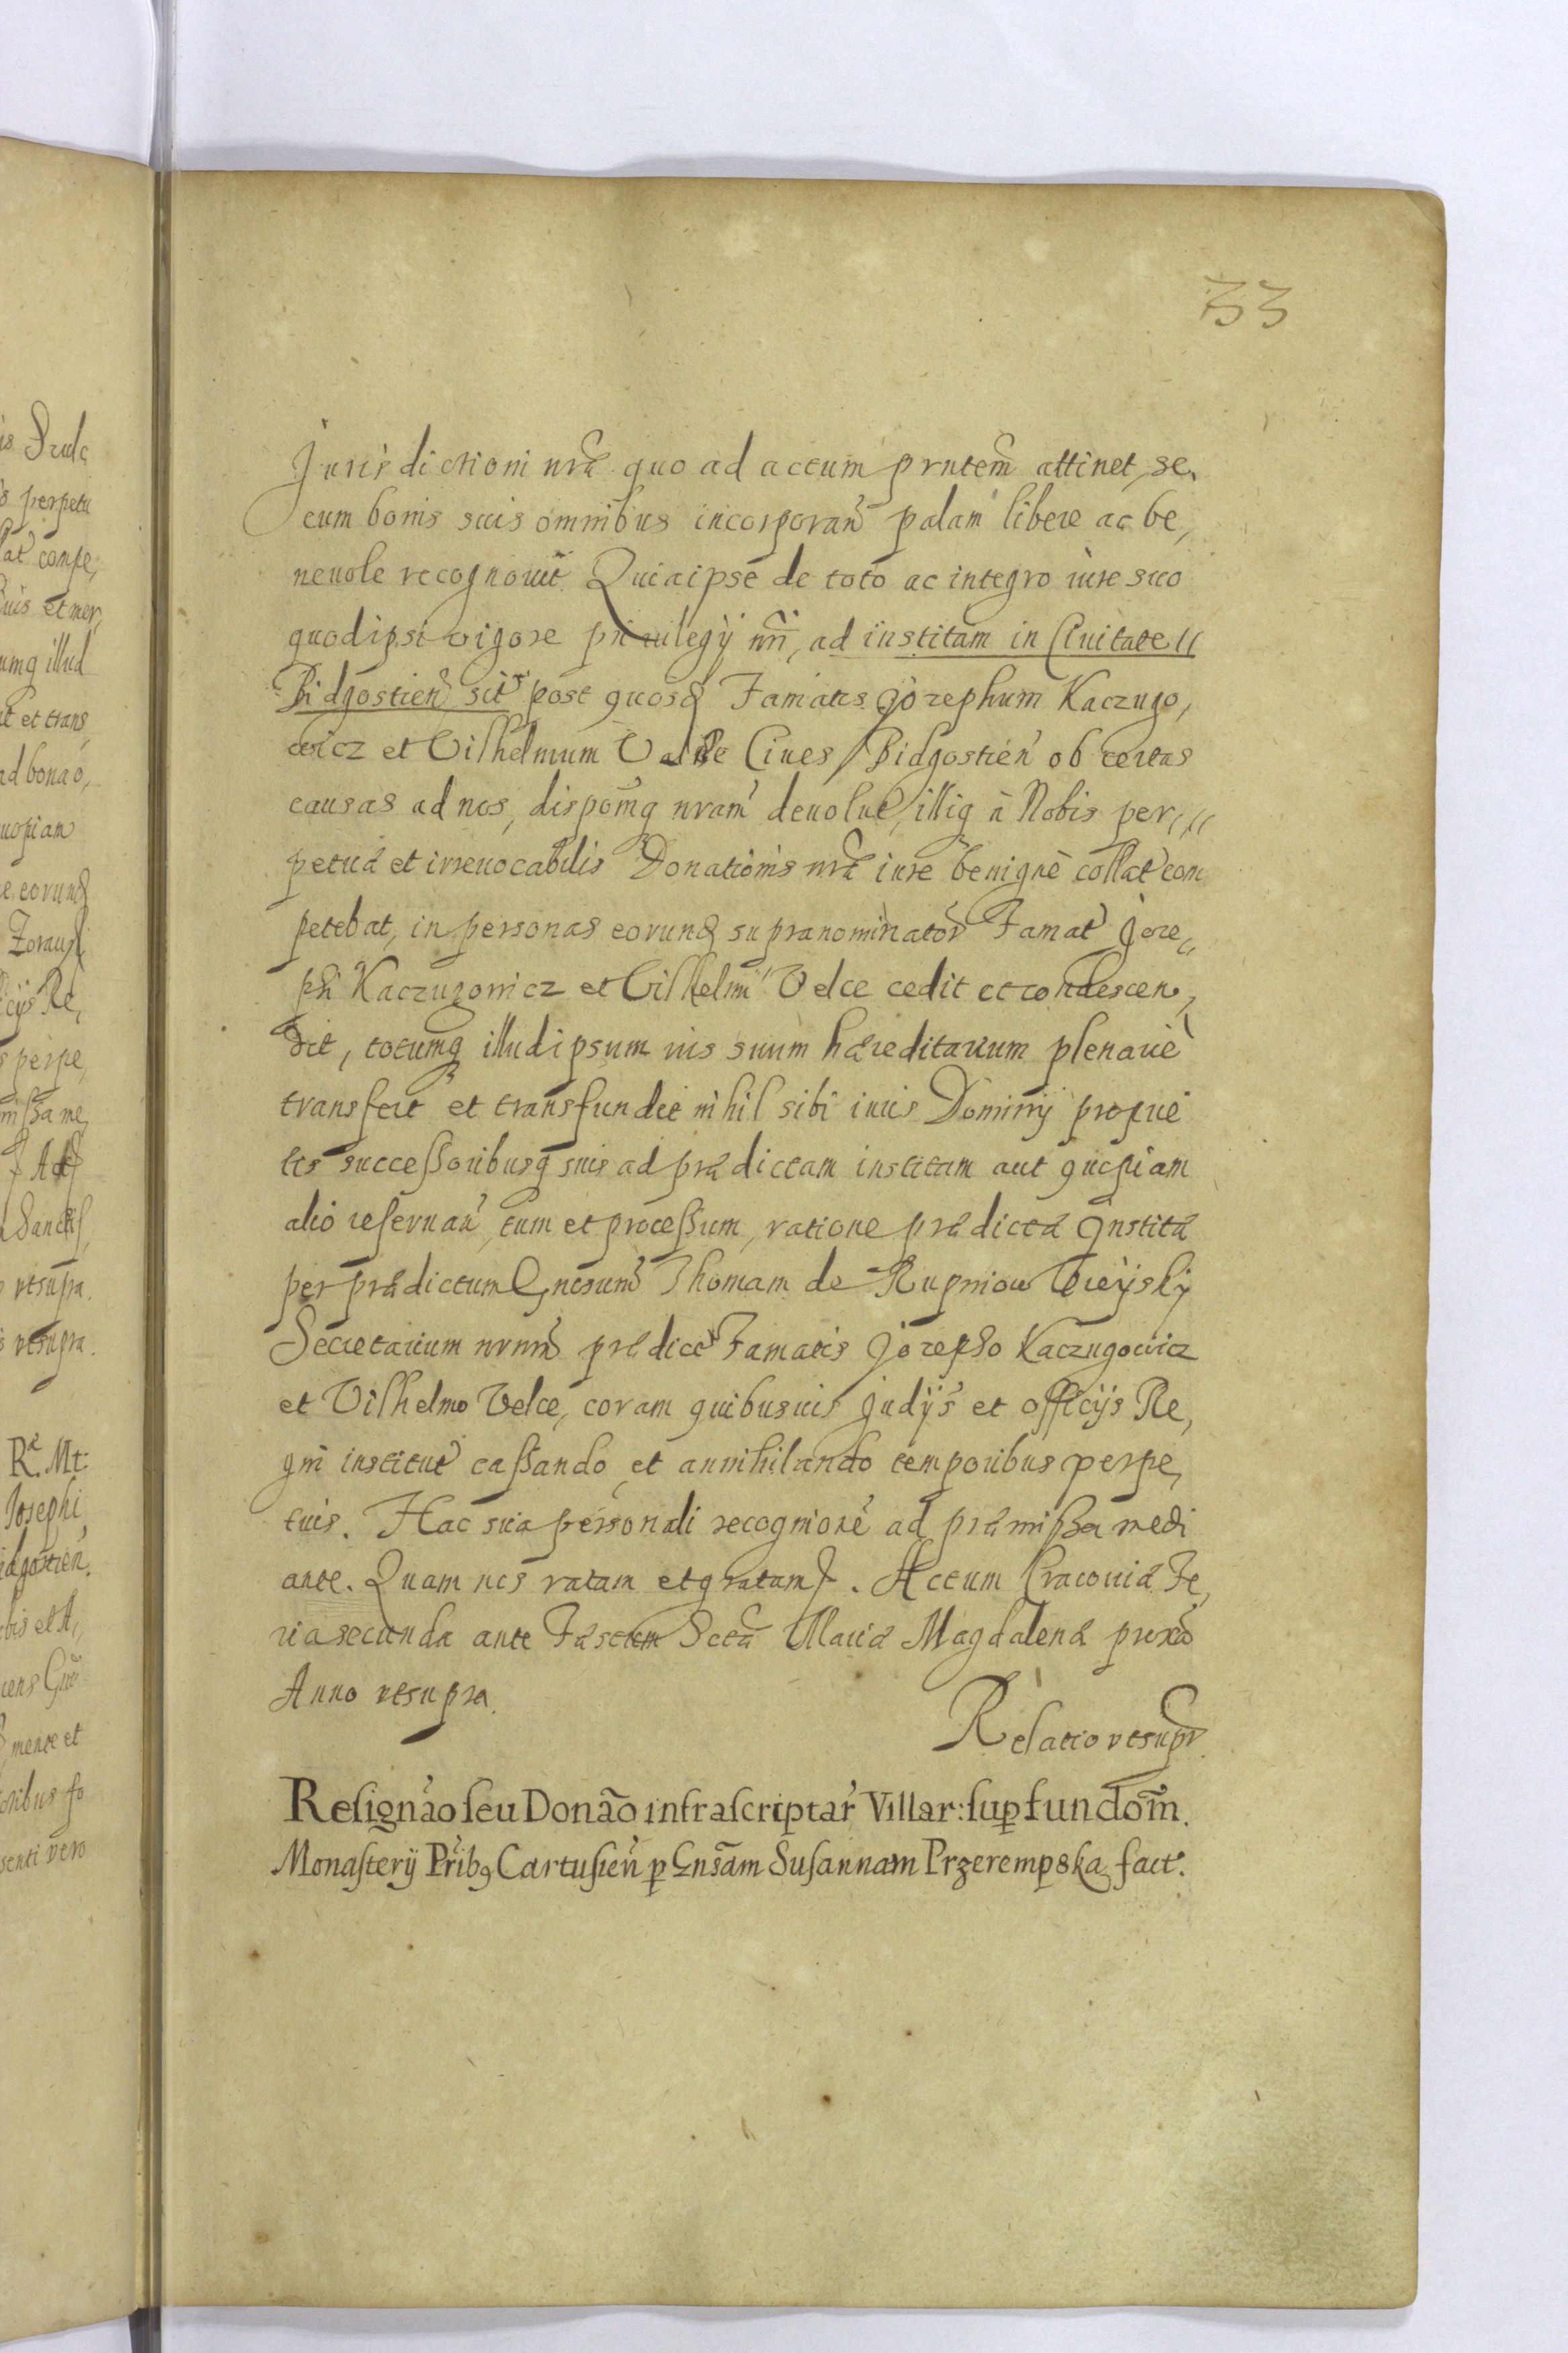 33
Jurisdictioni nrã quo ad actum prntem attinet, se,
cum bonis suis omnibus incorporan̄ palam libere ac be,
neuole recognouit. Quia ipse de toto ac integro iure suo
quod ipsi vigore priuilegÿ nrĩ, ad institam in Ciuitate //
Bidgostien̄ sit post quosd Famatis Jozephum Kaczugo,
wicz et Vilhelmum Velce Ciues Bidgostien̄ ob certas
causas ad nos, disponẽq nram̃ deuolut, illiq à Nobis per, //
petuæ et irreuocabilis Donationis nræ iure benignè collat com
petebat, in personas eorund supranominator̃ Famat Joze,,
phi Kaczugowicz et Vilhelmi Velce cedit et condescen,
dit, totumq illud ipsum ius suum hæreditarium plenariè
transfert et transfundit nihil sibi iuris Dominÿ proprie
tis successoribusq suis ad prædictam institam aut quopiam
alio reseruan̄, eum et processum, ratione prædictæ Institæ
per prædictum Gnosum̃ Thomam de Rupniow
Secretarium nrum̃ prædict Famatis Jozepho Kaczugowicz
et Vilhelmo Velce, coram quibusuis Judÿs et officÿs Re,
gni institut cassando et annihilando temporibus perpe,
tuis. Hac sua personali recognĩone ad præmissa medi
ante. Quam nos ratam et gratam. Actum Cracouiæ Fe,
ria secunda ante Festum Sctæ Mariæ Magdalenæ proxã
Anno vtsupra.
Relatio vtsupr
Resignão seu Donão infrascriptar̃ Villar: sup fundom̃.
Monasterÿ Prib9 Cartusien̄ p Gnsãm Susannam Przerempska fact.
is
perpetu
at compe,
uis et mer,
umq illud
it et trans,
ad bona o,
uopiam
e eorund
cÿs Re,
s perpe,
missa me,
vtsupra.
vtsupra.
Ræ. Mt:
Josephi
idgostien̄.
bis et A,
mente et
oribus so
senti vero